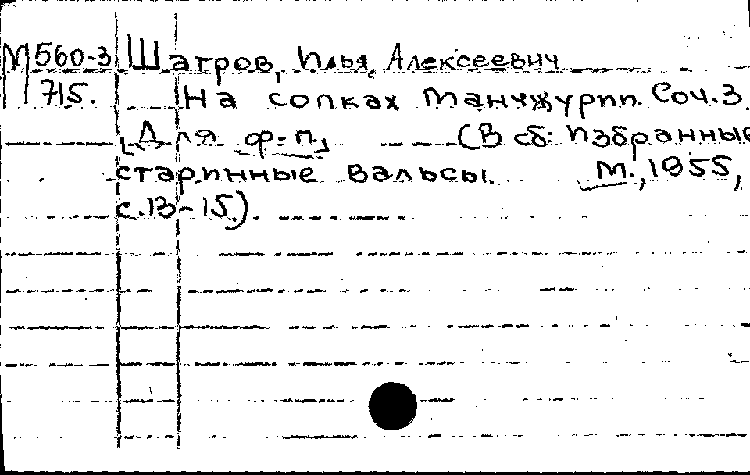 М560-3 Шатров, Илья Алексеевич
715. На сопках Манчжурии. Соч. 3.
[Для ф-п.] (В сб: Избранные
старинные вальсы. М., 1955,
с.13-15).